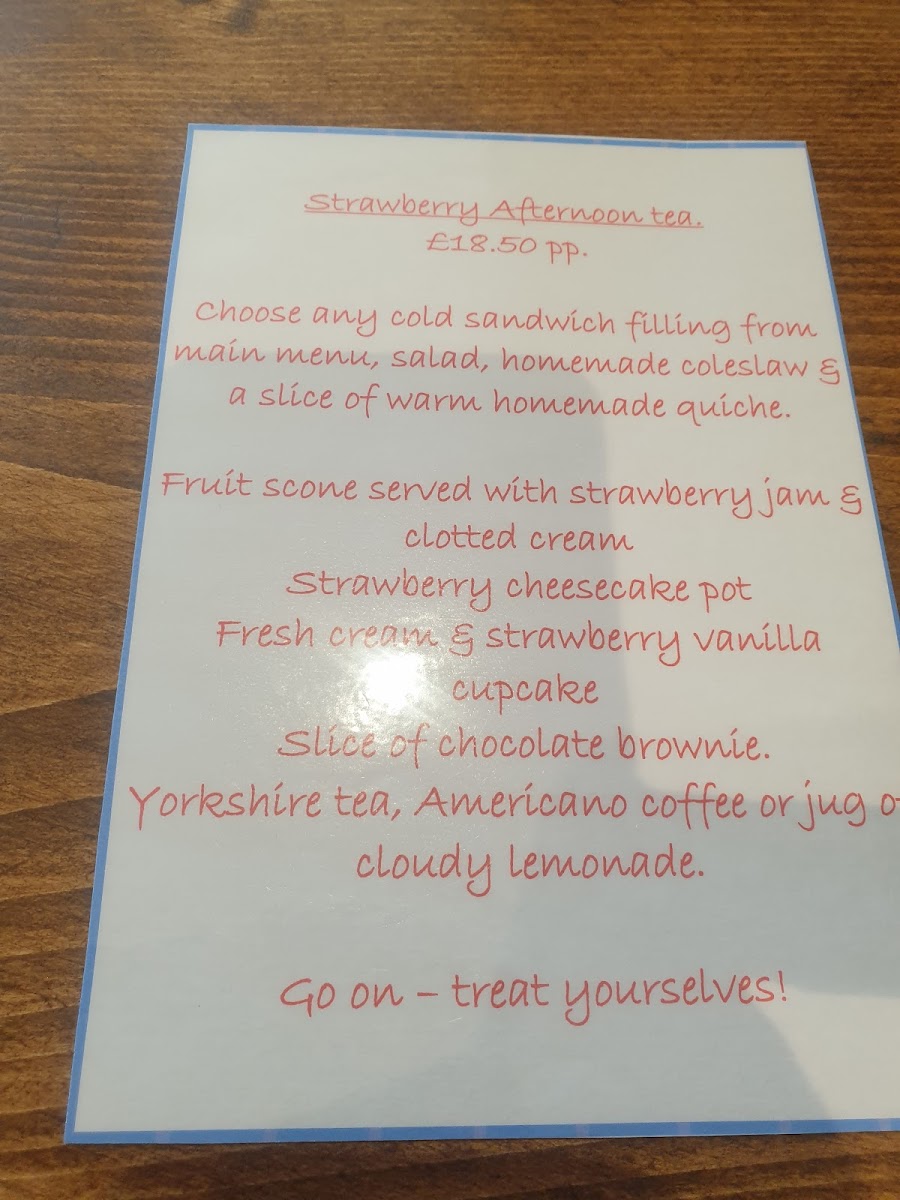 Strawberry Afternoon tea.
£18.50 pp.
Choose any cold sandwich filling from
main menu, salad, homemade coleslaw &
a slice of warm homemade quiche.
Fruit scone served with strawberry jam &
clotted cream
Strawberry cheesecake pot
Fresh cream & strawberry vanilla
cupcake
Slice of chocolate brownie.
Yorkshire tea, Americano coffee or jug o
cloudy lemonade.
Go on – treat yourselves!